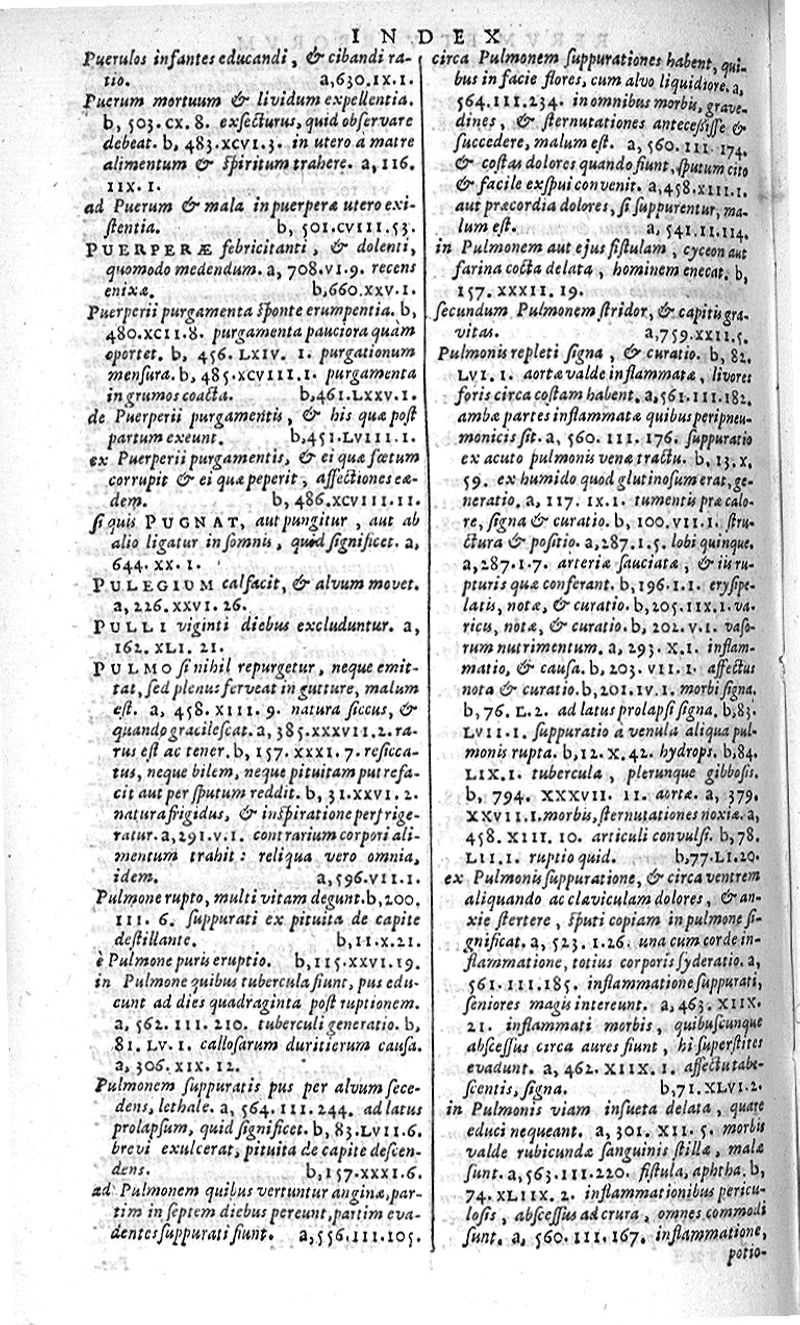 INDEX
Puerulos infantes educandi, & cibandi ra-
tio. a,630.IX.1.
Puerum mortuum & lividum expellentia.
b, 503.CX.8. exsecturus, quid observare
debeat. b, 483.XCVI.3. in utero a matre
alimentum & spiritum trahere. a, 116.
IIX.1.
ad Puerum & mala in puerperæ utero exi-
stentia. b, 501.CVIII.53.
PUERPERÆ febricitanti, & dolenti,
quomodo medendum. a, 708.VI.9. recens
enixæ. b,660.XXV.1.
Puerperii purgamenta sponte erumpentia. b,
480.XCII.8. purgamenta pauciora quam
oportet. b, 456. LXIV. 1. purgationum
mensura. b, 485.XCVIII.1. purgamenta
in grumos coacta. b,461.LXXV.1.
de Puerperii purgamentis, & his quæ post
partum exeunt. b,451.LVIII.1.
ex Puerperii purgamentis, & ei quæ fœtum
corrupit & ei quæ peperit, affectiones eæ-
dem. b, 486.XCVIII.11.
si quis PUGNAT, aut pungitur, aut ab
alio ligatur in somnis, quid significet. a,
644.XX.1.
PULEGIUM calfacit, & alvum movet.
a, 226.XXVI.26.
PULLI viginti diebus excluduntur. a,
162.XLI.21.
PULMO si nihil repurgetur, neque emit-
tat, sed plenus ferveat in gutture, malum
est. a, 458.XIII.9. natura siccus, &
quando gracilescat. a, 385.XXXVII.2. ra-
rus est ac tener. b, 157.XXXI.7. resicca-
tus, neque bilem, neque pituitam putrefa-
cit aut per sputum reddit. b, 31.XXVI.2.
natura frigidus, & inspiratione perfrige-
ratur. a,291.V.1. contrarium corpori ali-
mentum trahit: reliqua vero omnia,
idem. a,596.VII.1.
Pulmone rupto, multi vitam degunt. b,200.
III.6. suppurati ex pituita de capite
destillante. b,11.X.21.
è Pulmone puris eruptio. b,115.XXVI.19.
in Pulmone quibus tubercula fiunt, pus edu-
cunt ad dies quadraginta post ruptionem.
a, 562.III.210. tuberculi generatio. b,
81.LV.1. callosarum duritierum causa.
a, 306.XIX.12.
Pulmonem suppuratis pus per alvum sece-
dens, lethale. a, 564.III.244. ad latus
prolapsum, quid significet. b, 83.LVII.6.
brevi exulcerat, pituita de capite descen-
dens. b,157.XXXI.6.
ad Pulmonem quibus vertuntur anginæ, par-
tim in septem diebus pereunt, partim eva-
dentes suppurati fiunt. a,556.III.105.
circa Pulmonem suppurationes habent, qui-
bus in facie flores, cum alvo liquidiore. a,
564.III.234. in omnibus morbis, grave-
dines, & sternutationes antecessisse &
succedere, malum est. a, 560.III.174.
& costas dolores quando fiunt, sputum cito
& facile exspui convenit. a,458.XIII.1.
aut præcordia dolores, si suppurentur, ma-
lum est. a, 541.II.114.
in Pulmonem aut ejus fistulam, cyceon aut
farina cocta delata, hominem enecat. b,
157.XXXII.19.
secundum Pulmonem stridor, & capitis gra-
vitas. a,759.XXII.5.
Pulmonis repleti signa, & curatio. b, 82.
LVI.1. aortæ valde inflammatæ, livores
foris circa costam habent. a,561.III.182.
ambæ partes inflammatæ quibus peripneu-
monicis sit. a, 560.III.176. suppuratio
ex acuto pulmonis venæ tractu. b, 13.X.
59. ex humido quod glutinosum erat, ge-
neratio. a, 117.IX.1. tumentis præ calo-
re, signa & curatio. b, 100.VII.1. stru-
ctura & positio. a,287.1.5. lobi quinque.
a,287.1.7. arteriæ sauciatæ, & iis ru-
pturis quæ conferant. b,196.1.1. erysipe-
latis, notæ, & curatio. b,205.IIX.1. va-
ricis, notæ, & curatio. b, 202.V.1. vaso-
rum nutrimentum. a, 293.X.1. inflam-
matio, & causa. b, 203.VII.1. affectus
nota & curatio. b,201.IV.1. morbi signa.
b, 76.L.2. ad latus prolapsi signa. b,83.
LVII.1. suppuratio a venula aliqua pul-
monis rupta. b,12.X.42. hydrops. b,84.
LIX.1. tubercula, plerunque gibbosis.
b, 794. XXXVII. 11. aortæ. a, 379.
XXVII.1. morbis, sternutationes noxiæ. a,
458.XIII.10. articuli convulsi. b,78.
LII.1. ruptio quid. b,77.LI.20.
ex Pulmonis suppuratione, & circa ventrem
aliquando ac claviculam dolores, & an-
xie stertere, sputi copiam in pulmone si-
gnificat. a, 523.1.26. una cum corde in-
flammatione, totius corporis syderatio. a,
561.III.185. inflammatione suppurati,
seniores magis intereunt. a,463.XIIX.
21. inflammati morbis, quibuscunque
abscessus circa aures fiunt, hi superstites
evadunt. a, 462.XIIX.1. affectu tabe-
scentis, signa. b,71.XLVI.2.
in Pulmonis viam insueta delata, quare
educi nequeant. a, 301.XII.5. morbis
valde rubicundæ sanguinis stillæ, malæ
sunt. a,563.III.220. fistula, aphtha. b,
74.XLIIX.2. inflammationibus pericu-
losis, abscessus ad crura, omnes commodi
sunt. a, 560.III.167. inflammatione,
potio-